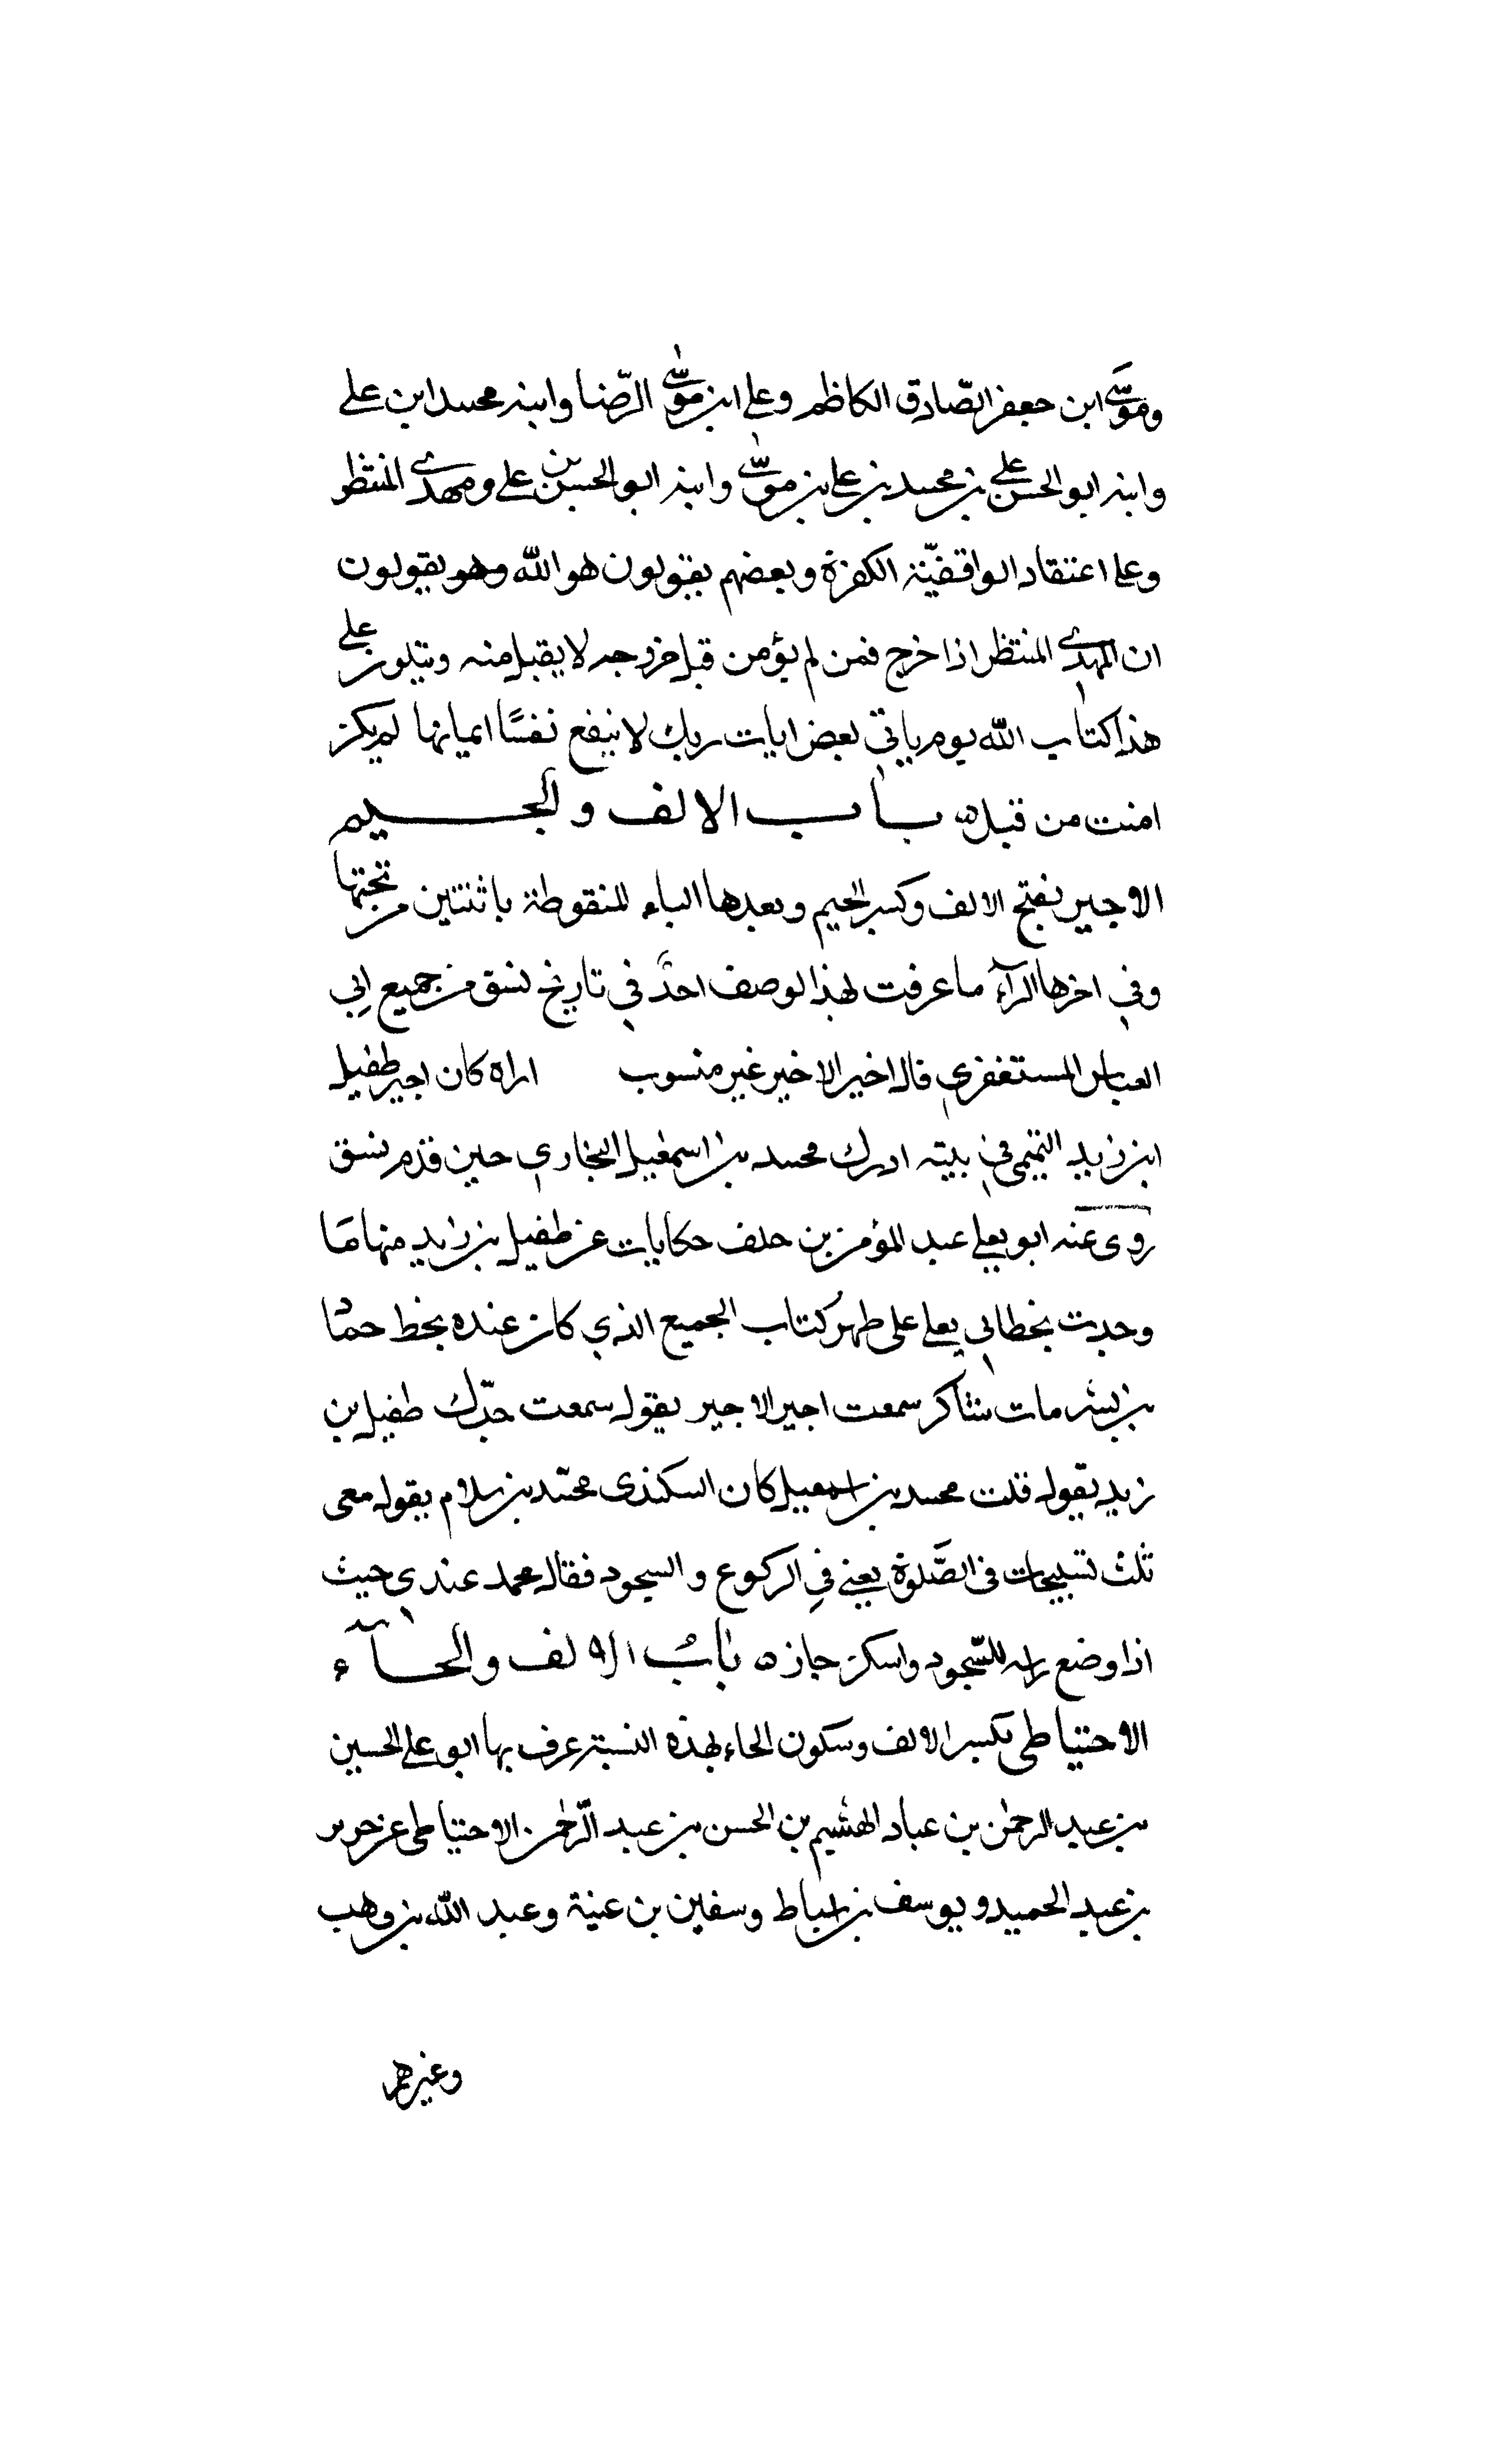 وموسى ابن جعفر الصّادق الكاظم وعلى ابن موسى الرّضا وابنه محمد ابن على
وابنه ابو الحسن على بن محمد بن على بن موسى وابنه ابو الحسن بن على ومهدى المنتظر
وعلى اعتقاد الواقفيّة الكفرة وبعضهم يقولون هو الله وهو يقولون
ان المهدى المنتظر اذا خرج فمن لم يؤمن قبل خروجه لا يقبل منه ويتلون على
هذا كتاب الله يوم ياتي بعض ايات ربك لا ينفع نفسًا ايمانها لم يكن
امنت من قبل ه باب الالف والجيم
الاجير بفتح الالف وكسر الجيم وبعدها الياء المنقوطة باثنتين من تحتها
وفي اخرها الرآء ما عرفت بهذا لوصف احدٌ في تاريخ نسق من جميع ابي
العباس المستغفري قال اخير الاخير غير منسوب اراه كان اجير طفيل
ابن زيد التميمى في بيته ادرك محمد بن اسمعيل البخاري حين قدم نسق
روى عنه ابو يعلى عبد المؤمن بن خلف حكايات عن طفيل بن زايد منها مَا
وجدت بخط ابي يعلى على ظهر كتاب الجميع الذي كان عنده بخط حماد
بن شاكر سمعت اجير الاجير يقول سمعت جدّك طفيل بن
زيد يقول قلت محمد بن اسمعيل كان السكندى محمّد بن سلام يقول معى
ثلث تسبيحات فى الصَّلوة يعني في الركوع والسجود فقال محمد عندي حيث
اذا وضع راسه للسّجود واسكن جاز ه بابُ الالف والحآء
الاحتياطى بكسر الالف وسكون الحاء بهذه النسبة عرف بها ابو على الحسين
بن عبد الرحمٰن بن عباد الهشيم بن الحسن بن عبد الرّحمٰن الاحتياطى عن جرير
بن عبد الحميد و يوسف بن اسباط وسفين بن عنية وعبد الله بن وهب
وغيرهم